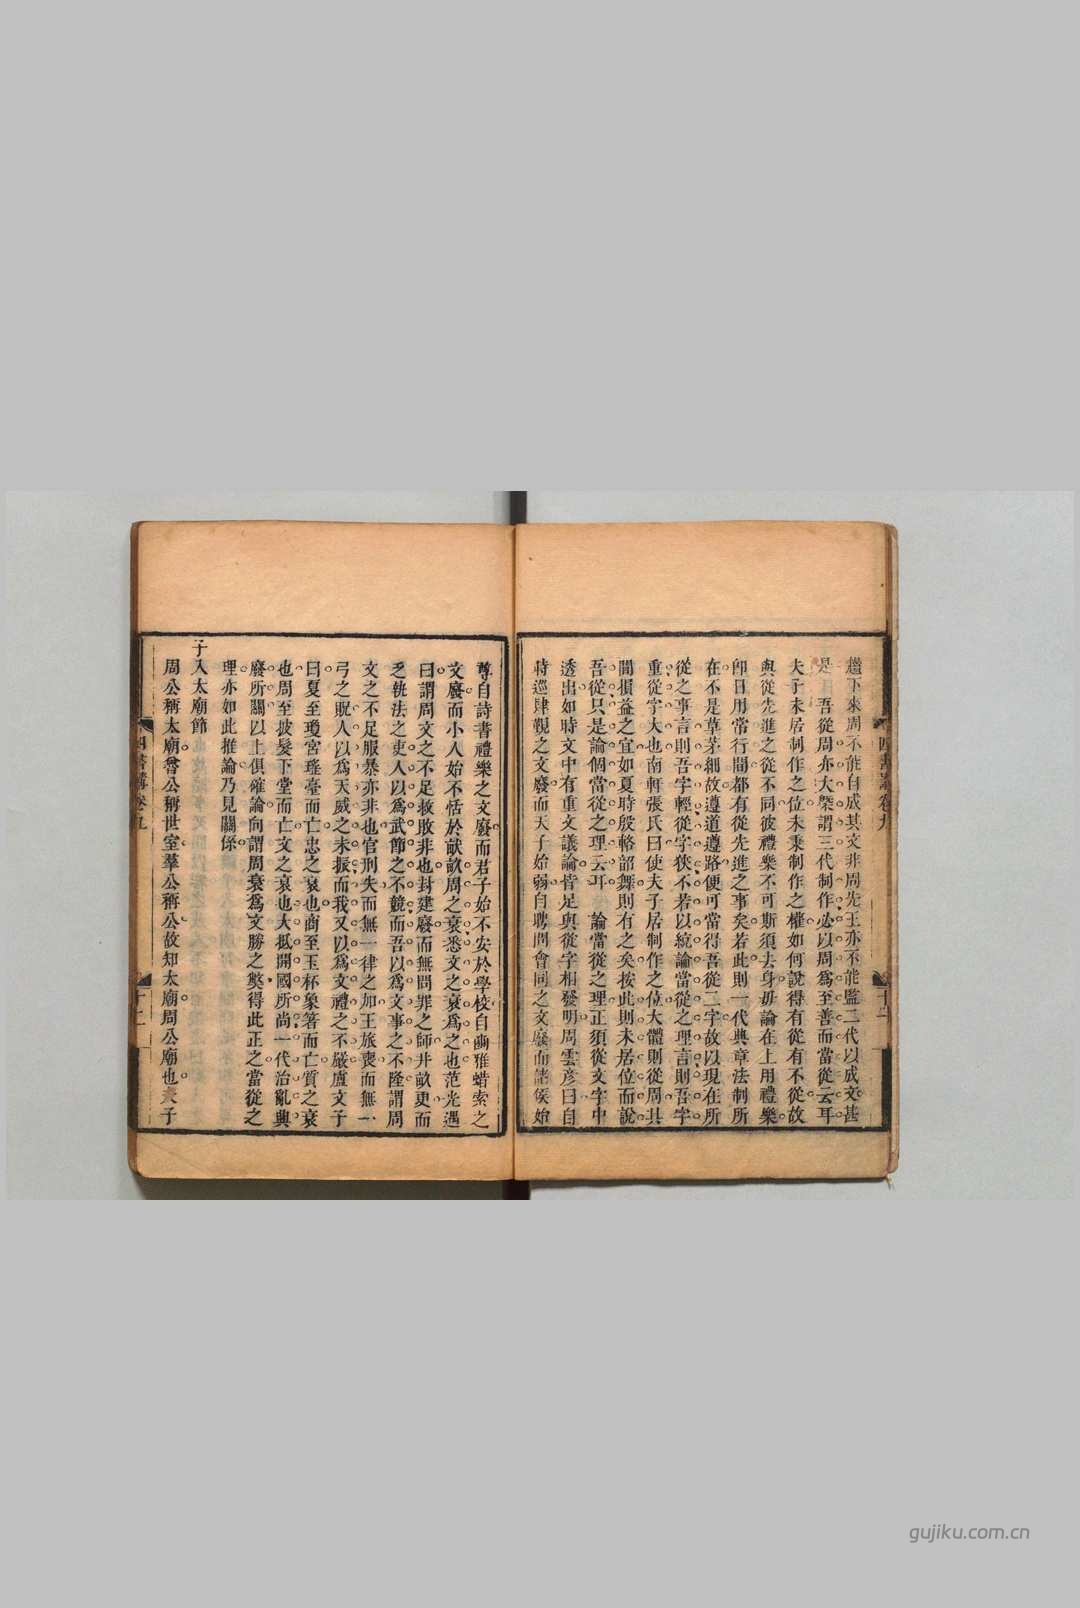 繼下來周不能自成其文非周先王亦不能監二代以成文甚
是曰吾從周亦大槩謂三代制作必以周爲至善而當從云耳
夫子未居制作之位未秉制作之權如何說得有從有不從故
與從先進之從不同彼禮樂不可斯須去身毋論在上用禮樂
卽日用常行間都有從先進之事矣若此則一代典章法制所
在不是草茅細故遵道遵路便可當得吾從二字故以現在所
從之事言則吾字輕從字狹不若以統論當從之理言則吾字
重從字大也南軒張氏曰使夫子居制作之位大體則從周其
間損益之宜如夏時殷輅韶舞則有之矣按此則未居位而說
吾從只是論個當從之理云耳 論當從之理正須從文字中
透出如時文中有重文議論皆足與從字相發明周雲彥曰自
時巡肆覲之文廢而天子始弱自聘問會同之文廢而諸侯始
四書講卷九
十二
尊自詩書禮樂之文廢而君子始不安於學校自豳雅蜡索之
文廢而小人始不恬於畎畝周之衰悉文之衰爲之也范光遇
曰謂周文之不足救敗非也封建廢而無問罪之師井畝更而
乏執法之吏人以爲武節之不競而吾以爲文事之不隆謂周
文之不足服暴亦非也官刑失而無一律之加王旅喪而無一
弓之貺人以爲天威之未振而我又以爲文禮之不嚴盧文子
曰夏至瓊宮瑤臺而亡忠之衰也商至玉杯象箸而亡質之衰
也周至披髮下堂而亡文之衰也大抵開國所尚一代治亂興
廢所關以上俱確論向謂周衰爲文勝之獘得此正之當從之
理亦如此推論乃見關係
子入太廟節
周公稱太廟魯公稱世室羣公稱公故知太廟周公廟也夫子
四書講卷九